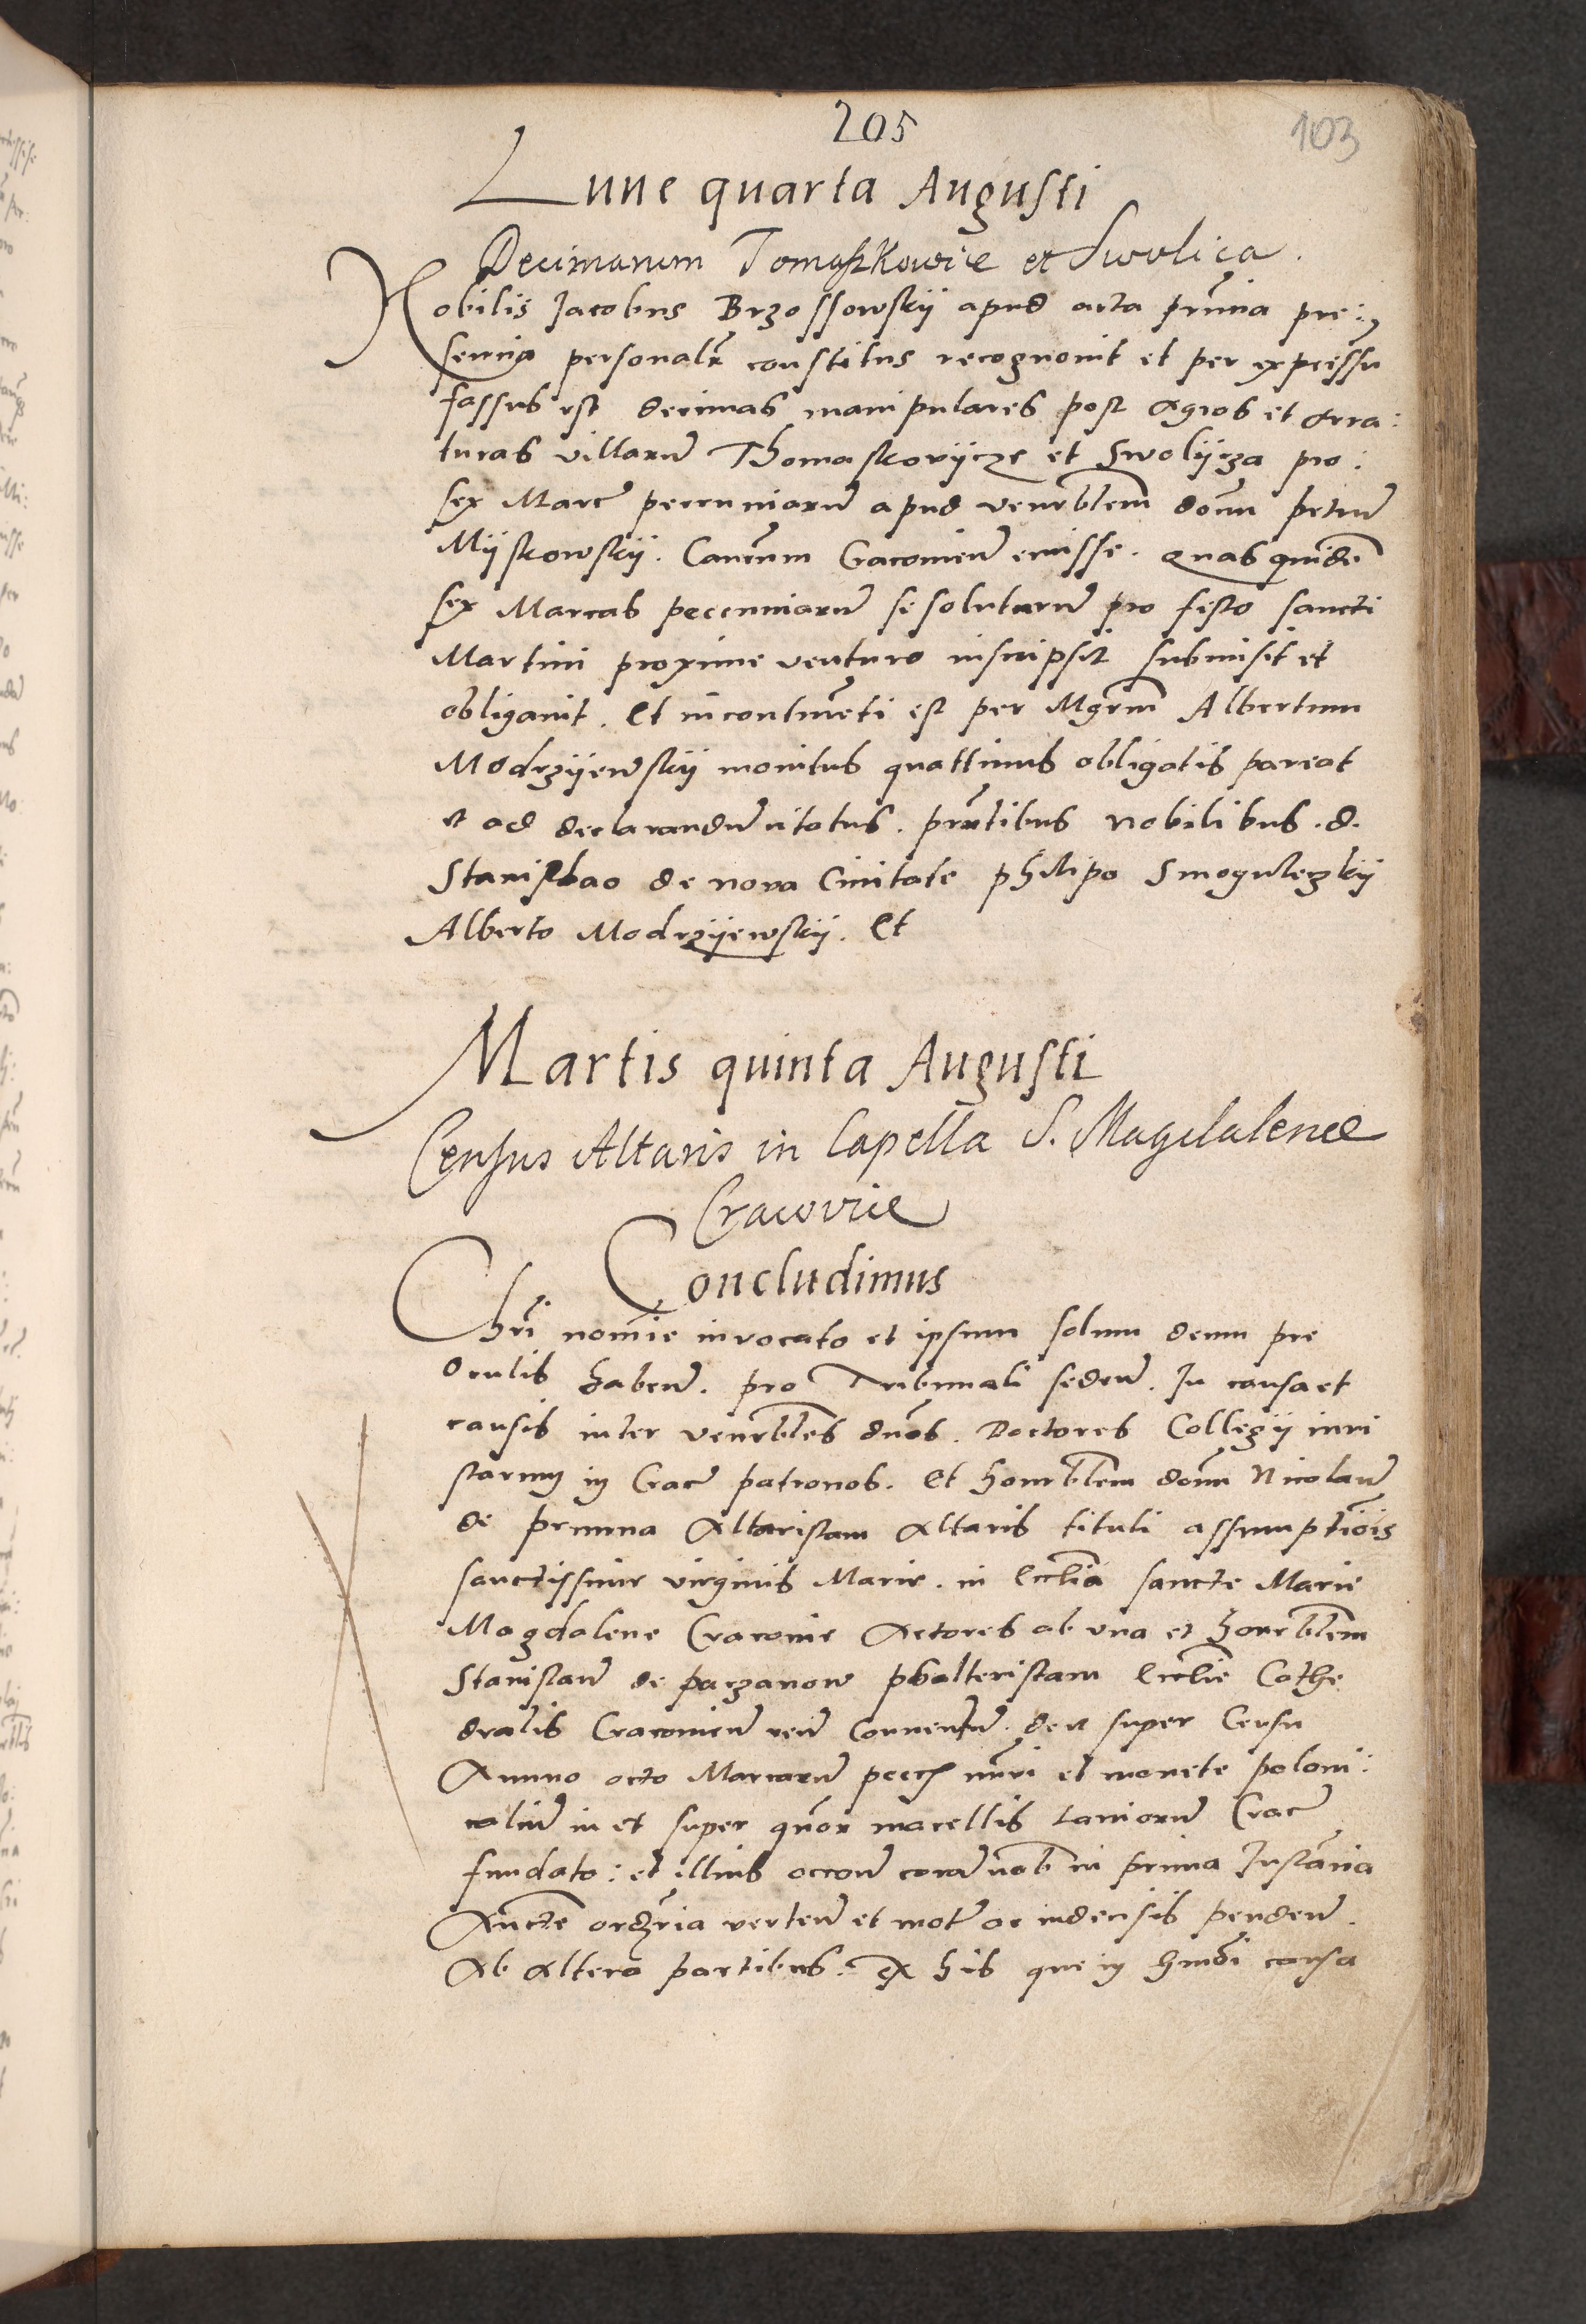 205
103
Lune quarta Augusti
Decimarum Tomaszkowice et Swolica.
Nobilis Jacobus Brzossowskÿ apud acta pñtia pre:
sentia personalr constitus recognovit et per expressu
fassus est decimas manipulares post agros et arra:
turas villarũ Thomaskovÿcze et Swolÿcza pro:
sex Marc̃ pecuniarũ apud venerblem dom̃ petrũ
Mÿskowskÿ. Canc̃um Cracovieñ emisse. Quas quidẽ
sex Marcas pecuniarũ se soluturũ pro festo sancti
Martini proxime venturo inscripsit submisit et
obligavit. Et incontinẽti est per Mgrm̃ Albertum
Modrzÿewskÿ monitus quattinus obligatis pareat
et ad declarandũ citatus. pñtibus nobilibus. d.
Stanislao de nova Civitate philipo Smoguleczkÿ
Alberto Modrzÿewskÿ. Et
Martis quinta Augusti
Census Altaris in Capella S. Magdalenae
Cracoviae
Concludimus
Chrĩ nomĩe invocato et ipsum solum deum pre
oculis habeñ. pro Tribunali sedeñ. In causa et
causis inter venerbles dnõs. Doctores Collegÿ iuri
starum in Crac̃ patronos. Et honorblem dom̃ Nicolaũ
de pr Altaristam Altaris tituli assumptiõis
sanctissime virginis Marie. in Ecclia sancte Marie
Magdalene Cracovie Actores ab una et honorblem
Stanislaũ de paczanow psalteristam Ecclie Cathe
dralis Cracovieñ reũ Conventũ de et super Censu
Annuo octo Marcarũ pecc̃ nũri et monete poloni:
caliũ in et super quõr macellis Laniorũ Crac̃
fundato: et illius occoñe corã nob̃ in prima Instãtia
Aucte ordĩria verteñ et mot̃ ac indecisis pendeñ.
Ab altera partibus. Ex his que in hmõi causa